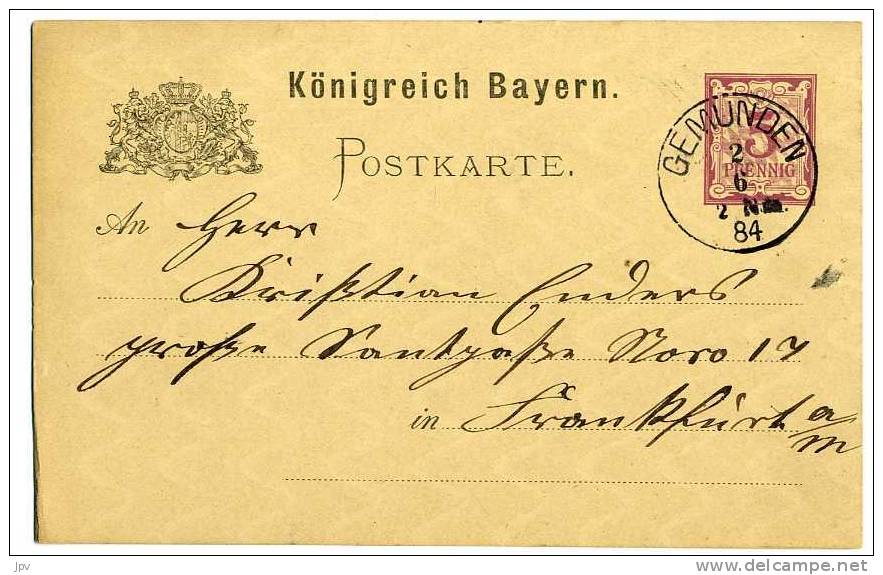 Königreich Bayern.
POSTKARTE.
5
PFENNIG
GEMÜNDEN
2
6
2 Nm.
84
An Herrn
Kristian Enders
große Sandgaße Nro 17
in Frankfurt a/m
jpv
delcampe.net